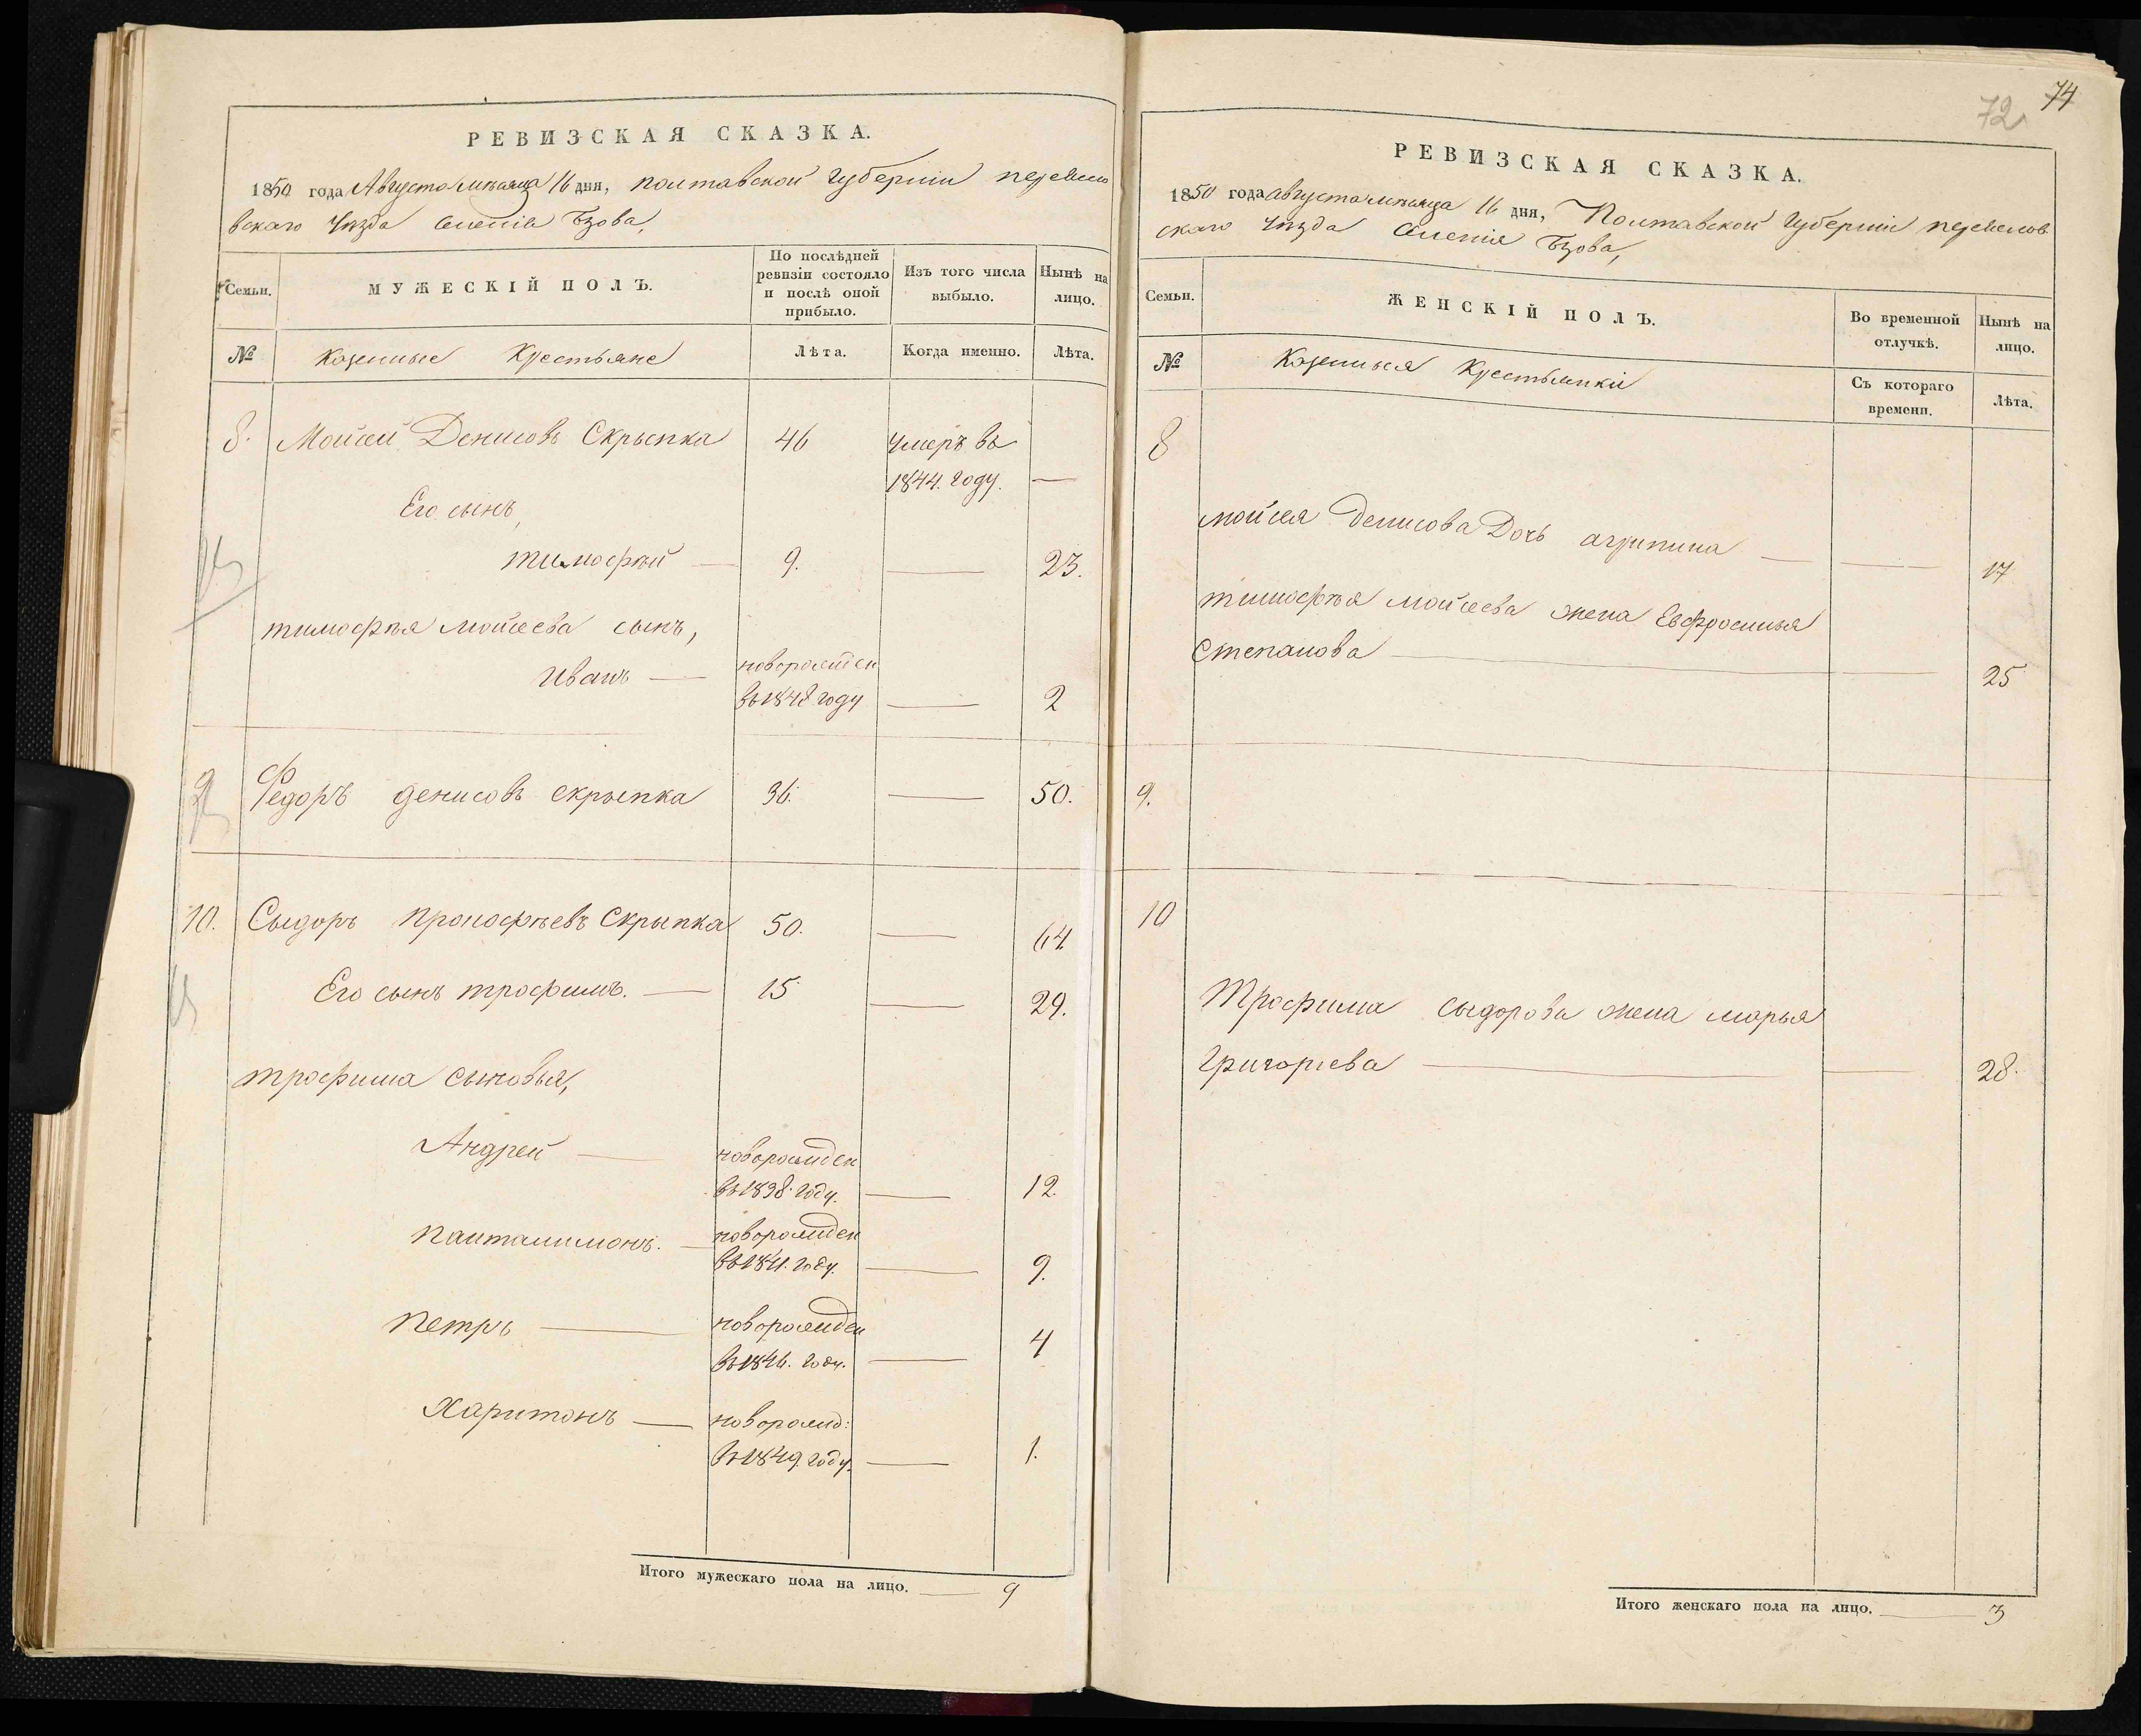 РЕВИЗСКАЯ СКАЗКА.
1850 года Августа мѣсяца 16 дня, полтавской Губерніи переясло
вскаго Уѣзда селенія Бзова,
Семьи.
МУЖЕСКІЙ ПОЛЪ.
По послѣдней
ревизіи состояло
и послѣ оной
прибыло.
Изъ того числа
выбыло.
Нынѣ на
лицо.
№
Казенные Крестьяне
Лѣта.
Когда именно.
Лѣта.
8. Мойсей Денисовъ Скрыпка 46 Умеръ въ
1844. году. —
Его сынъ,
тимофѣй — 9. — 23.
тимофѣя Мойсеева сынъ,
Иванъ — новорожден
въ 1848 году — 2
9 Федоръ денисовъ скрыпка 36. — 50.
10. Сыдоръ Прокофьевъ Скрыпка 50. — 64
Его сынъ трофимъ. — 15 — 29.
трофима сыновья,
Андрей — новорожден
въ 1838. году. — 12.
Панталимонъ. — новорожден
въ 1841. году. — 9.
Петръ — новорожден
въ 1846. году. — 4
Харитонъ — новорожд:
въ 1849. году. — 1.
Итого мужескаго пола на лицо. — 9
72 74
РЕВИЗСКАЯ СКАЗКА.
1850 года августа мѣсяца 16 дня, Полтавской Губерніи переяслов
скаго Уѣзда Селенія Бзова,
Семьи.
ЖЕНСКІЙ ПОЛЪ.
Во временной
отлучкѣ.
Нынѣ на
лицо.
№
Казенныя Крестьянки
Съ котораго
времени.
Лѣта.
8
мойсея Денисова Дочь агрипина — — 17
тимофѣя мойсеева жена Евфросинья
Степанова — — 25
9.
10
Трофима сыдорова жена марья
Григорьева — — 28.
Итого женскаго пола на лицо. — 3